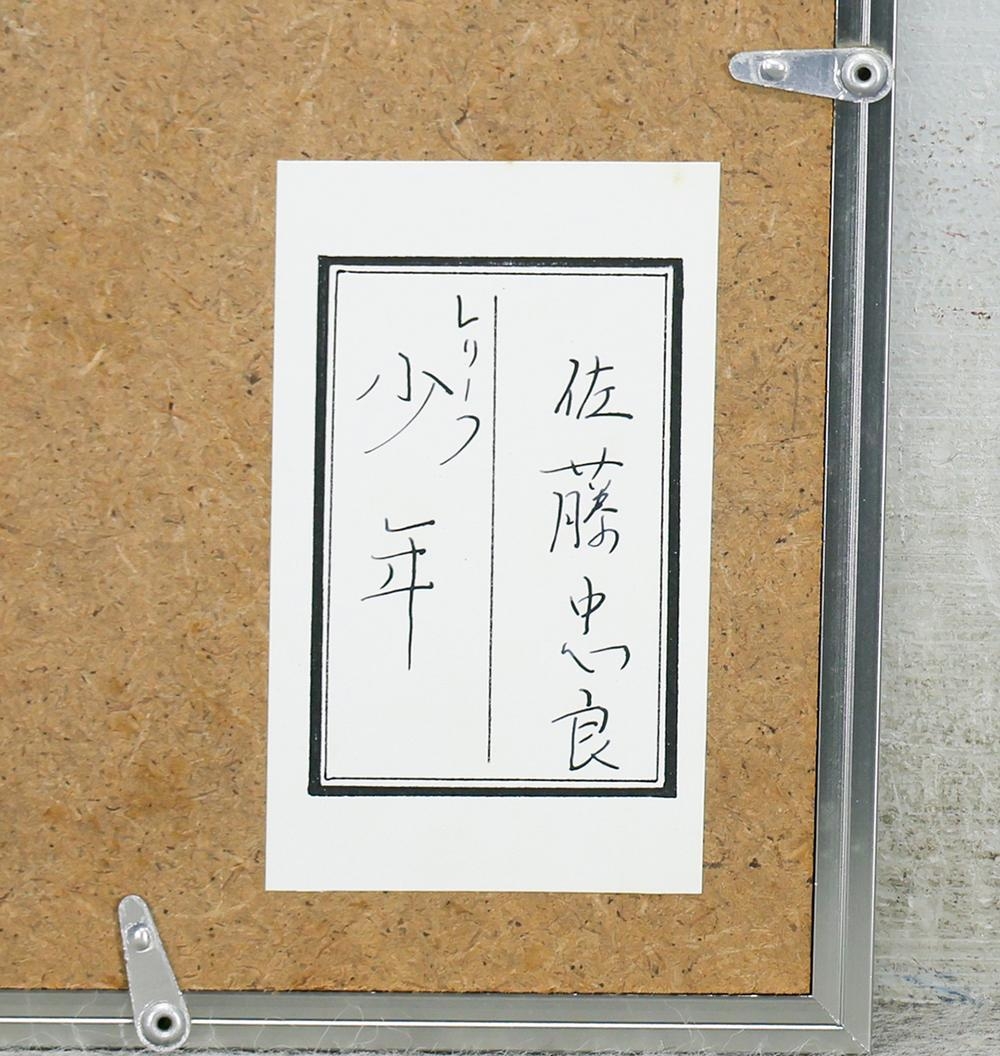 佐藤忠良
レリーフ
少年